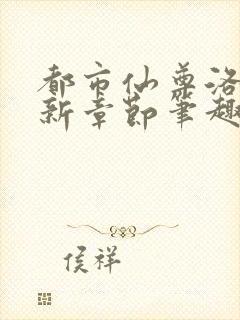 都市仙尊洛
新章节笔趣
侯祥